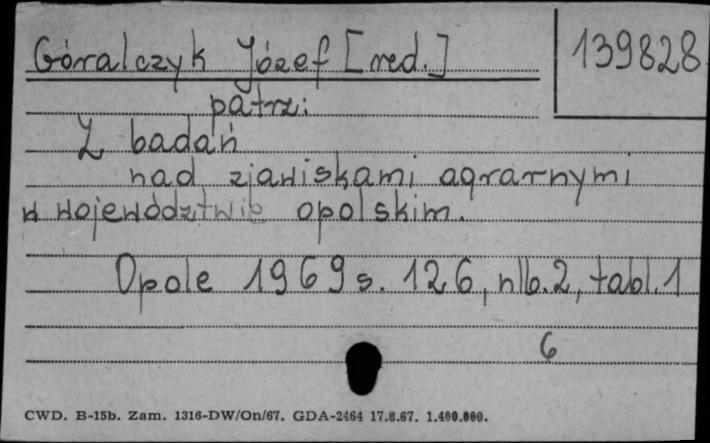 Góralczyk Józef [red.]
139828
patrz:
Z badań
nad zjawiskami agrarnymi
w województwie opolskim.
Opole 1969 s. 126, nlb. 2, tabl. 1
6
CWD. B-15b. Zam. 1316-DW/On/67. GDA-2464 17.8.67. 1.400.000.